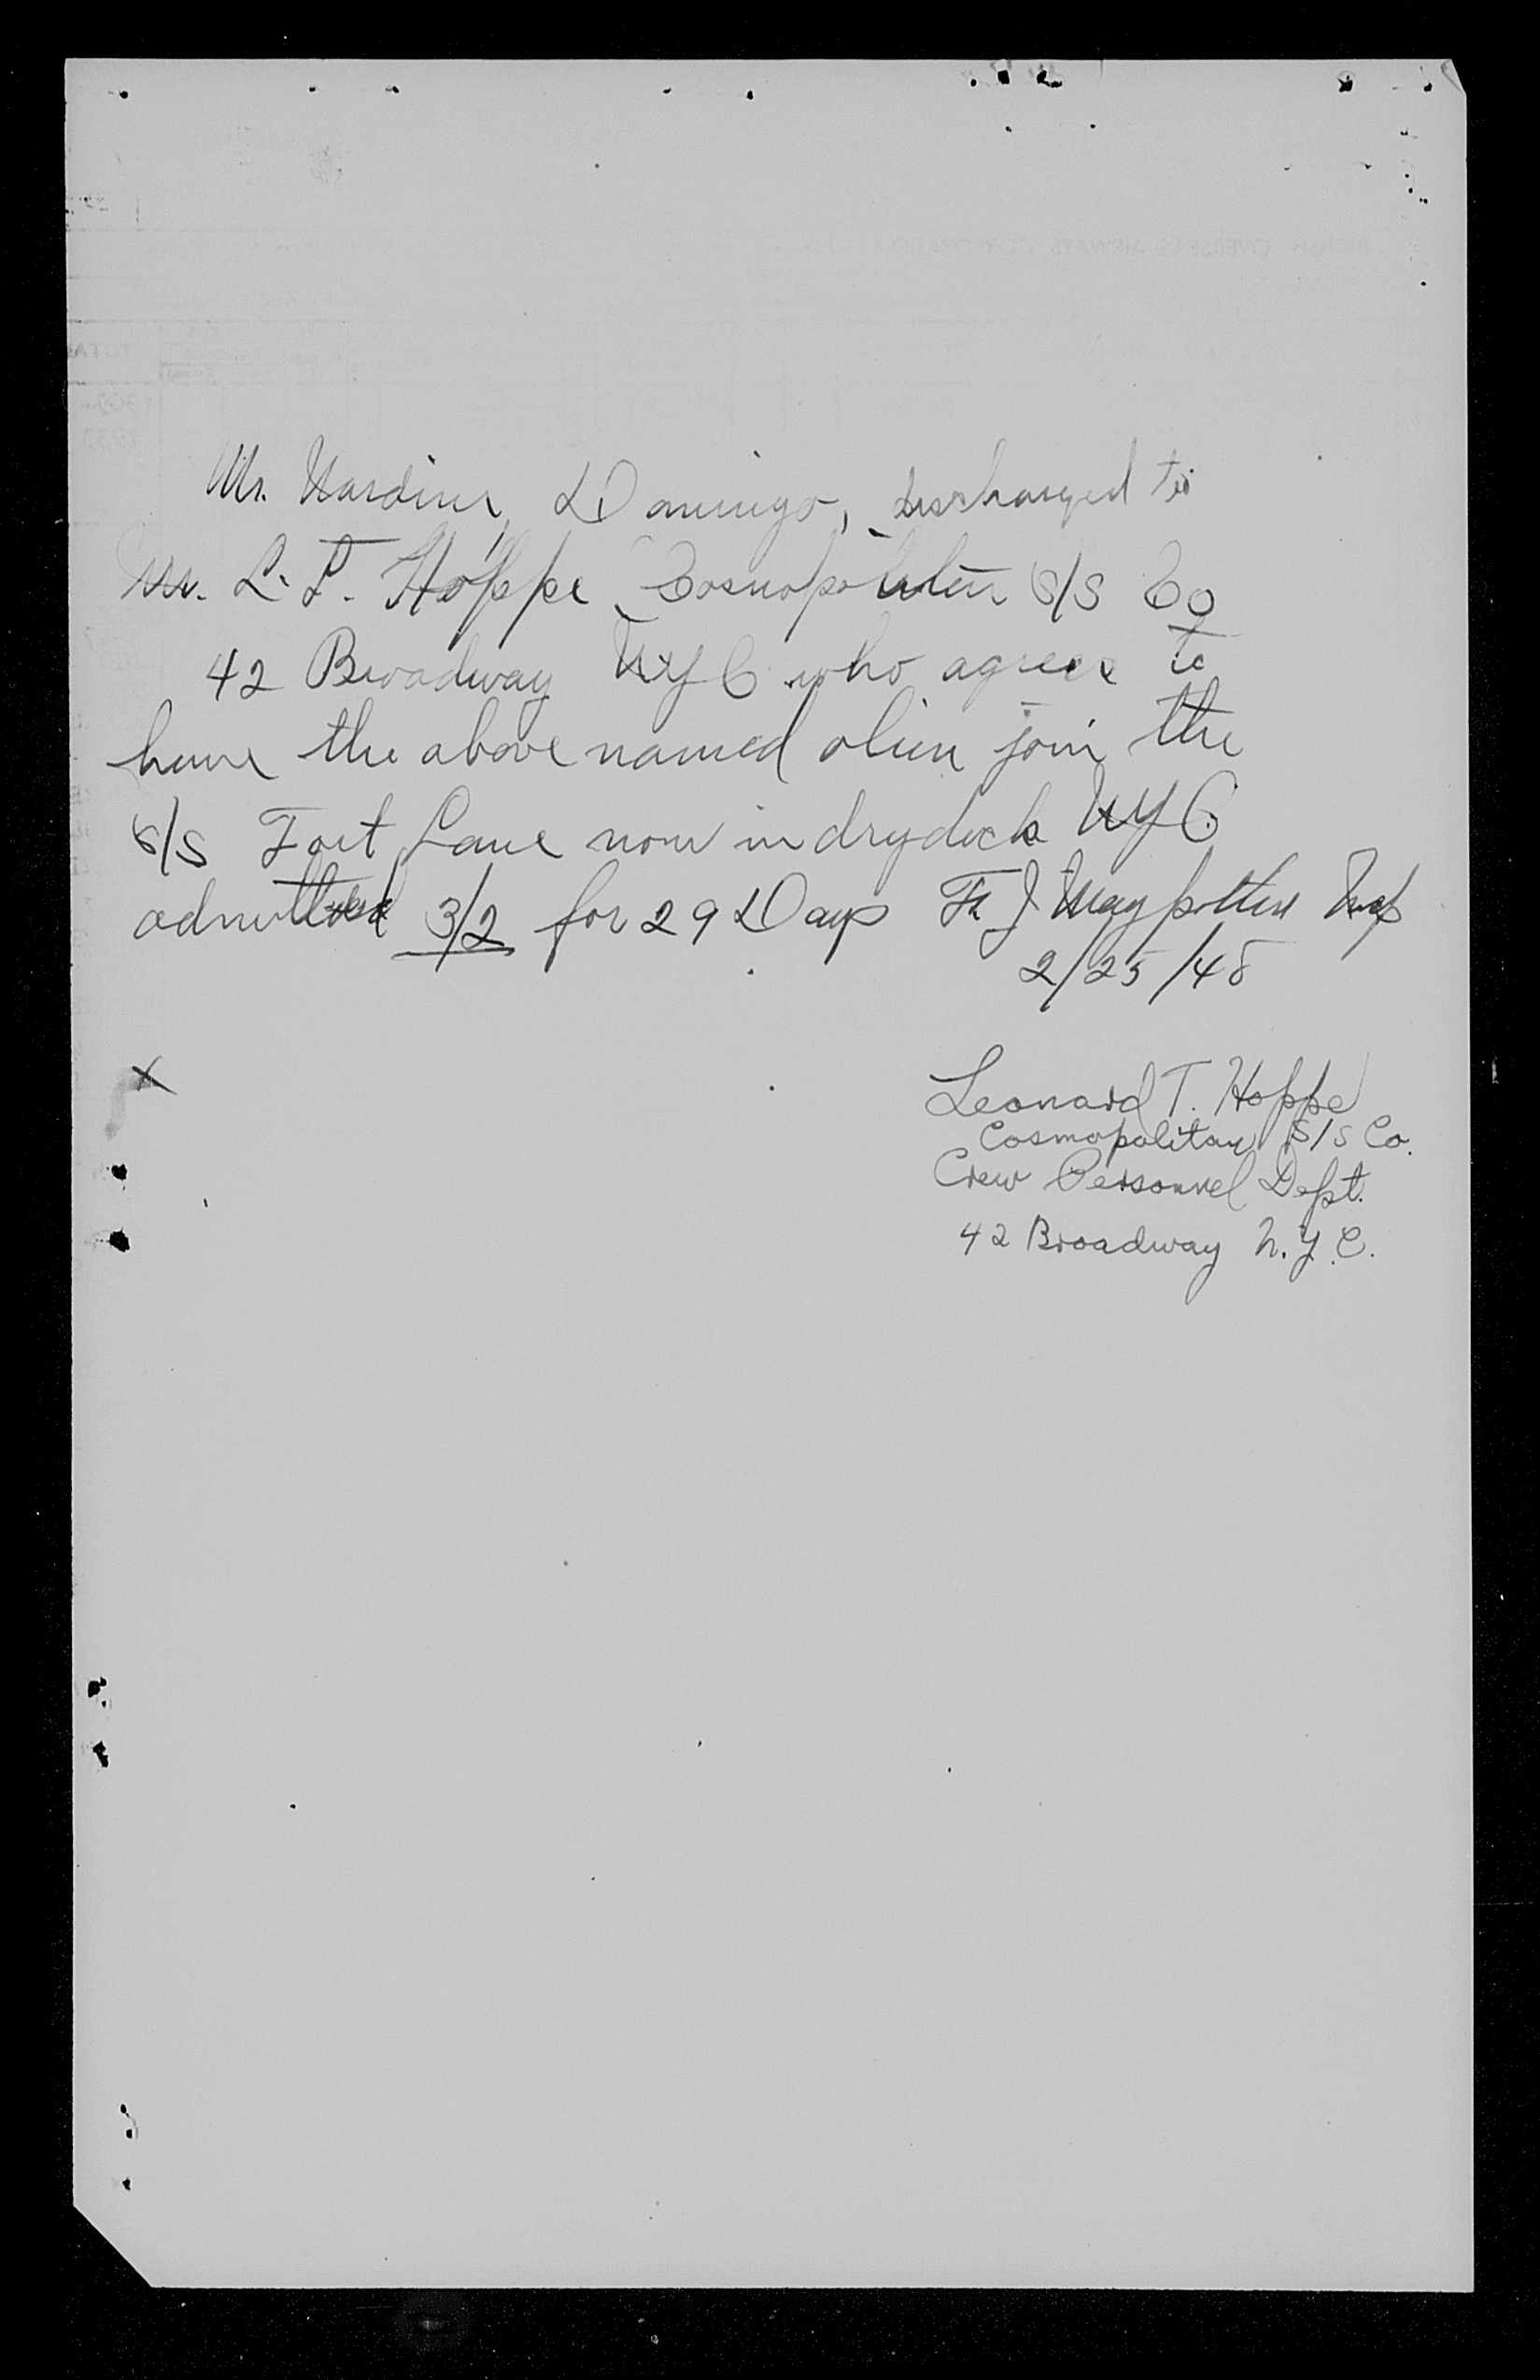 Mr. Nardini, Domingo, discharged to
Mr. L. T. Hoppe Cosmopolitan S/S Co
42 Broadway NYC who agrees to
have the above named alien join the
S/S Fort Lane now in drydock NYC
admitted 3/2 for 29 Days Insp
2/25/48
X
Leonard T. Hoppe
Cosmopolitan S/S Co.
Crew Personnel Dept.
42 Broadway N.Y.C.